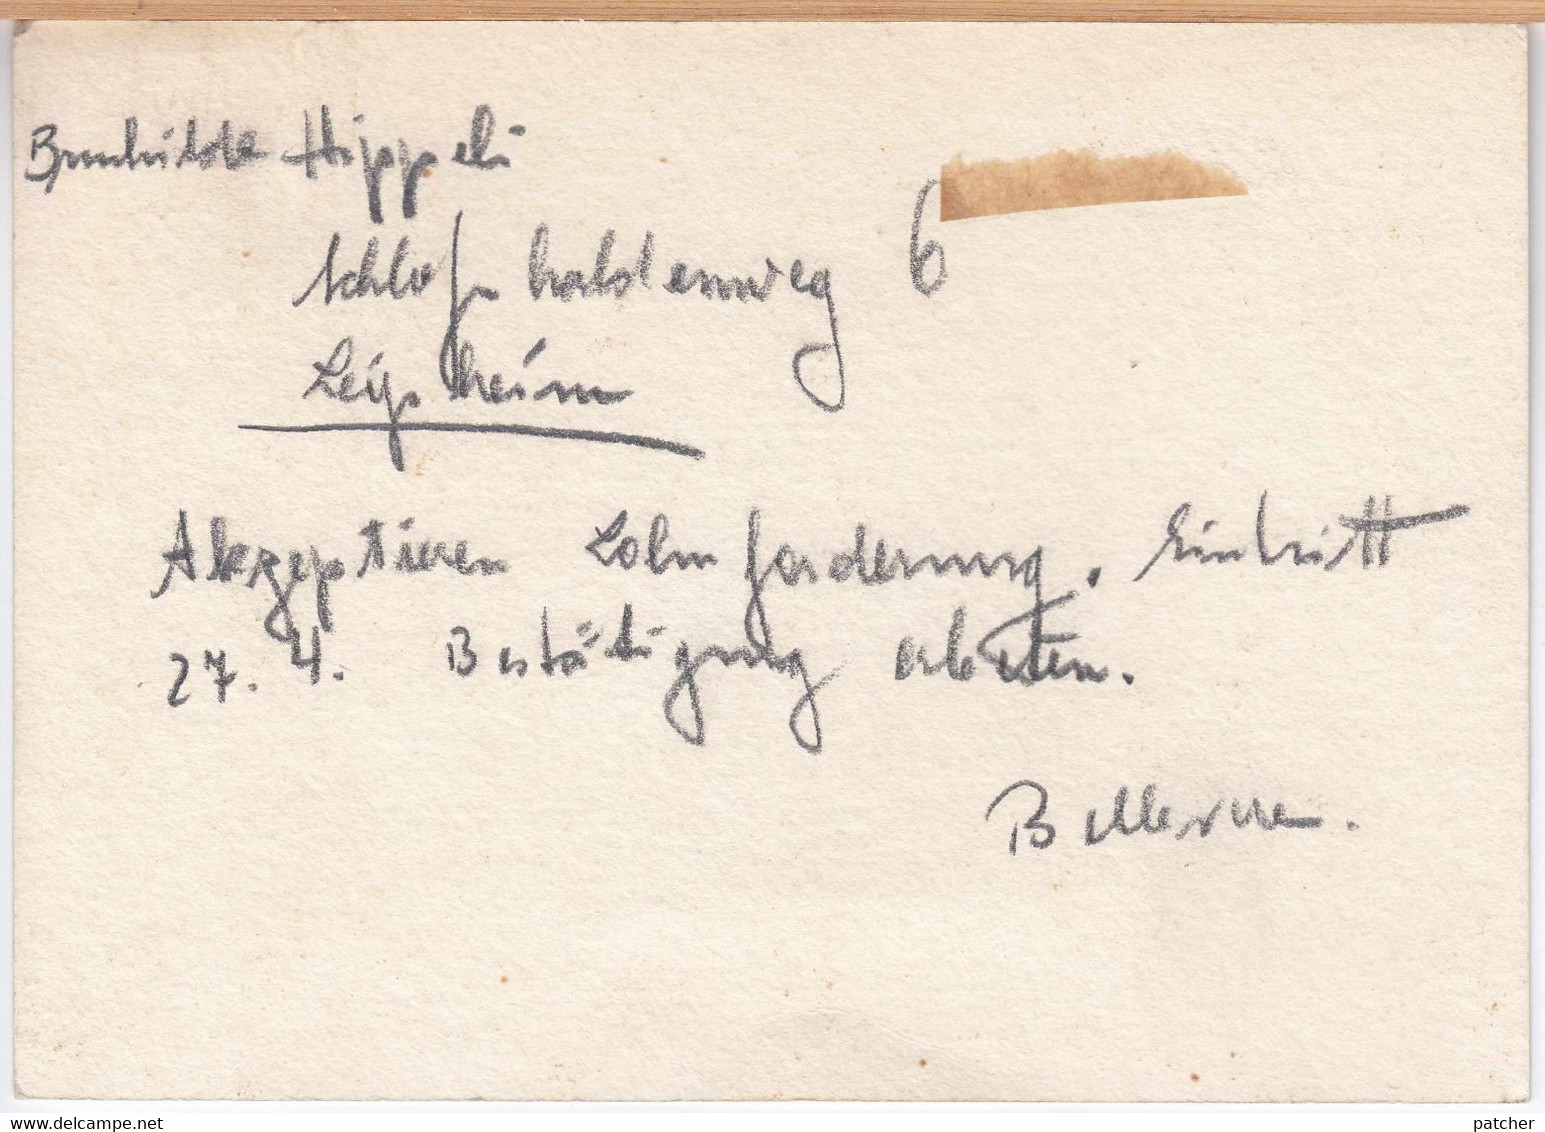 Brunhilde Hippeli
Schloßhaldenweg 6
Leipheim
Akzeptieren Lohnforderung. Eintritt
27. 4. Bestätigung erbeten.
Bellevue.
www.delcampe.net
patcher